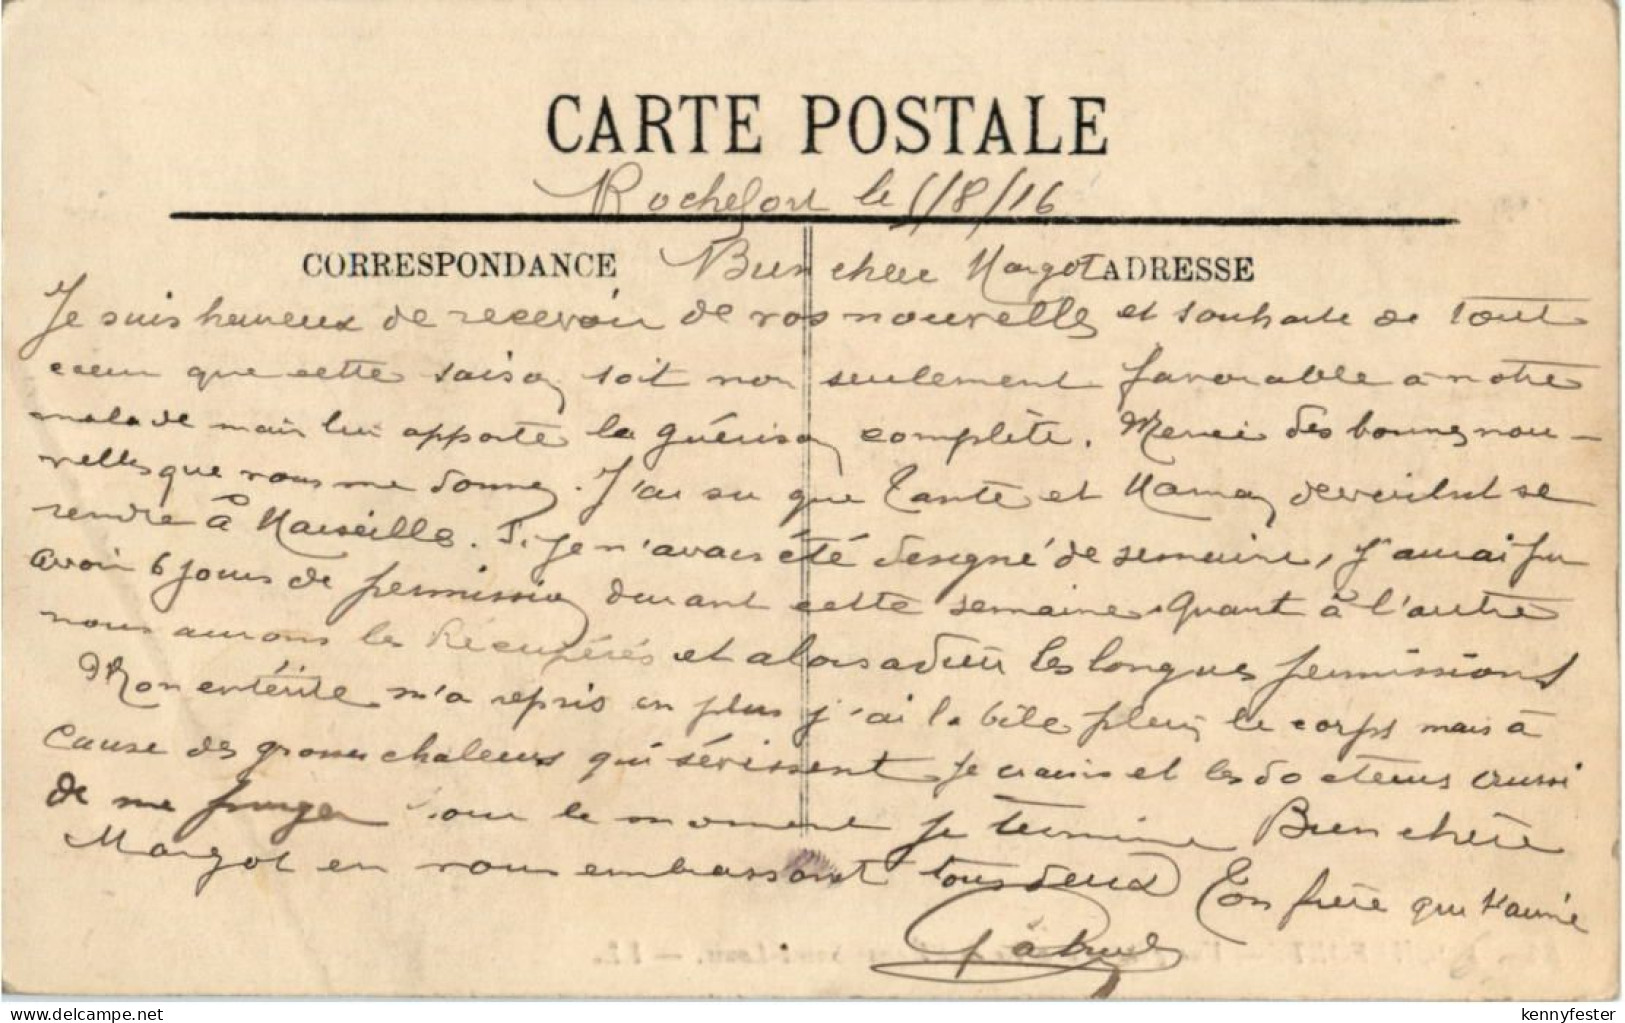 CARTE POSTALE
Rochefort le 5/8/16
CORRESPONDANCE
Bien chère Margot
ADRESSE
Je suis heureux de recevoir de vos nouvelles et souhaite de tout
coeur que cette saison soit non seulement favorable à notre
malade mais lui apporte la guérison complète. Merci des bonnes nou-
velles que vous me donnez. J'ai su que Tante et Maman devraient se
rendre à Marseille. Si je n'avais été désigné de semaine, j'aurai pu
avoir 6 jours de permission durant cette semaine. Quant à l'autre
nous aurons les Récupérés et alors adieu les longues permissions
Mon entérite m'a repris en plus j'ai la bile plein le corps mais à
cause des grosses chaleurs qui sévissent je crains et les docteurs aussi
de me purger Pour le moment je termine Bien chère
Margot en vous embrassant tous deux Ton frère qui t'aime
Gabriel
delcampe.net
kennyfester